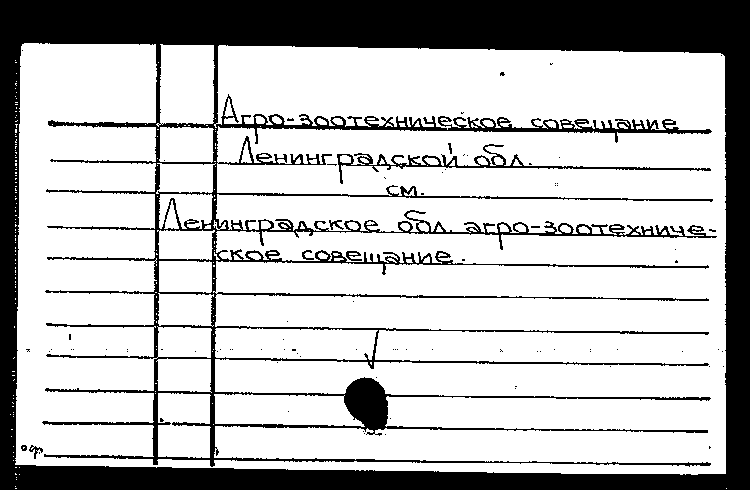 Агро-зоотехническое совещание
Ленинградской обл.
см.
Ленинградское обл. агро-зоотехниче-
ское совещание.